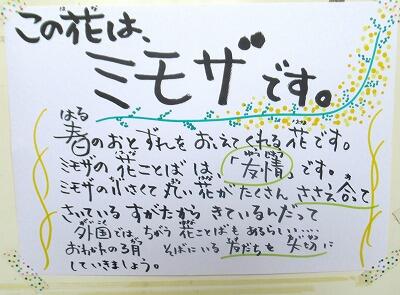 この花は、
ミモザです。
春のおとずれをおしえてくれる花です。
ミモザの花ことばは、「友情」です。
ミモザの小さくて丸い花がたくさんささえ合って
さいているすがたからきているんだって
外国では、ちがう花ことばもあるらしい‥‥
おわかれの3月 そばにいる友だちを大切に
していきましょう。